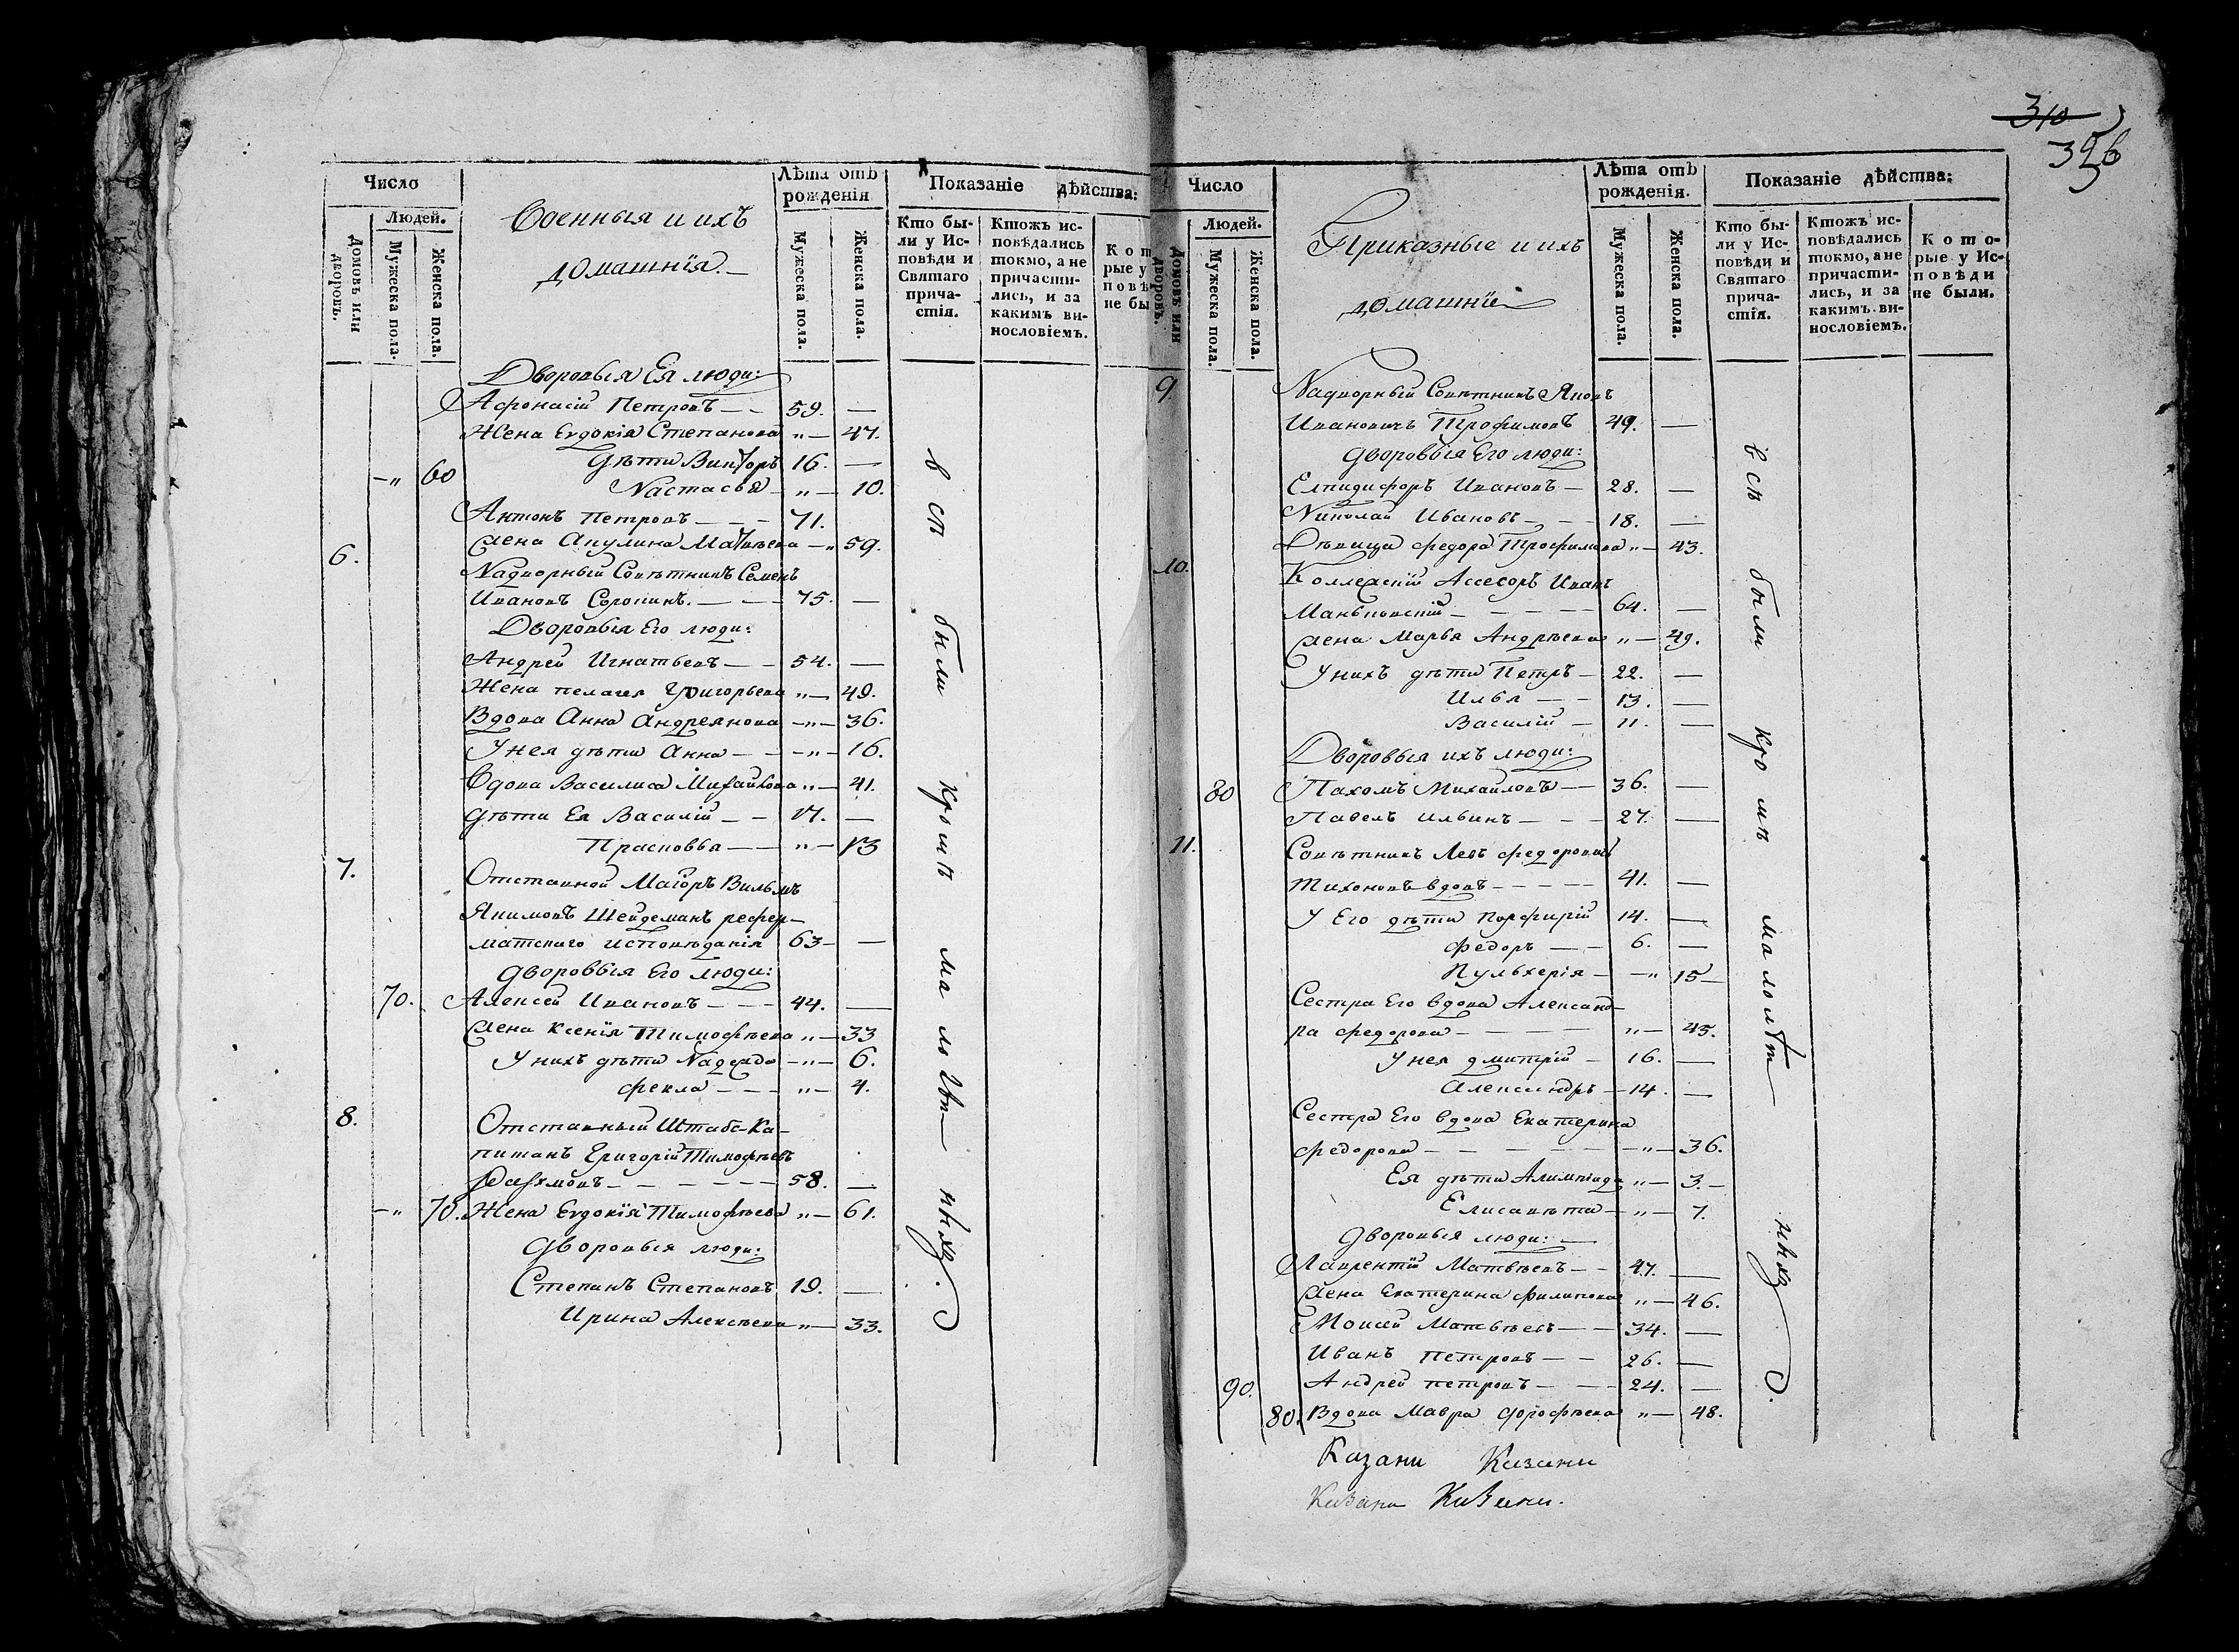 Число
Людей.
Домовъ или дворовъ.
Мужеска пола.
Женска пола.
Военныя и ихъ
домашнія.
Лѣта отъ рожденія
Мужеска пола.
Женска пола.
Показаніе дѣйства:
Кто были у Исповѣди и Святаго причастія.
Ктожъ исповѣдались токмо, а не причастились, и за какимъ винословіемъ.
Кот
рые у
повѣ
не бы
Дворовыя Ея люди:
Афонасій Петровъ — — 59. —
Жена Евдокія Степанова „ — 47.
Дѣти Викторъ 16. —
— „ 60 Настасья — „ — 10.
Антонъ Петровъ — — — 71.
Жена Акулина Матвѣева — „ 59.
6. Надворный Совѣтникъ Семенъ
Ивановъ Сорокинъ. — — — 75. —
Дворовыя Его люди:
Андрей Игнатьевъ — — 54. —
Жена пелагея Григорьева „ — 49.
Вдова Анна Андреянова — „ — 36.
У нея дѣти Анна — — „ — 16.
Вдова Василиса Михайлова „ — 41.
Дѣти Ея Василій — — 17. —
Прасковья — — „ — 13
7. Отставной Маіоръ Вильмъ
Якимовъ Шейдеманъ рефер-
матскаго исповѣданія 63 — —
Дворовыя Его люди:
70. Алексей Ивановъ — — — 44. —
Жена Ксенія Тимофѣева „ — 33
У нихъ дѣти Надежда — „ — 6.
Фекла — — — „ — 4.
8. Отставный Штабс-Ка-
питанъ Григорій Тимофѣевъ
58. —
— „ 70. Жена Евдокія Тимофѣева „ — 61.
Дворовыя люди:
Степанъ Степановъ 19. —
Ирина Алексѣева „ — 33.
всѣ были кромѣ малолѣтныхъ.
310
326
Число
Людей.
Домовъ или дворовъ.
Мужеска пола.
Женска пола.
Приказные и ихъ
домашніе
Лѣта отъ рожденія.
Мужеска пола.
Женска пола.
Показаніе дѣйства:
Кто были у Исповѣди и Святаго причастія.
Ктожъ исповѣдались токмо, а не причастились, и за какимъ винословіемъ.
Которые у Исповѣди не были.
9. Надворный Совѣтникъ Яковъ
Ивановичъ Трофимовъ 49. —
Дворовыя Его люди:
Елпидифоръ Ивановъ — 28. —
Николай Ивановъ — — 18. —
Дѣвица Федора Трофимова „ — 43.
10. Коллежскій Асесоръ Иванъ
Маньковскій — — — — 64. —
Жена Марья Андрѣева „ — 49.
У нихъ дѣти Петръ — 22. —
Илья — — 13. —
Василій — 11. —
Дворовыя ихъ люди:
80 Пахомъ Михайловъ — 36. —
Павелъ Ильинъ — — — 27. —
11. Совѣтникъ Левъ Федоровичъ
Тихоновъ вдовъ — — — — 41. —
У Его дѣти Порфирій 14. —
Федоръ — — 6. —
Пульхерія — — „ 15 —
Сестра Его вдова Александ-
ра Федорова — — — — „ — 45.
У нея Дмитрій — 16. —
Александръ — 14. —
Сестра Его вдова Екатерина
Федорова — — — — — „ — 36.
Ея дѣти Алимпіада „ — 3. —
Елисавѣта — „ — 7.
Дворовыя люди: —
Лаврентій Матвѣевъ — — 47. —
Жена Екатерина Филипова „ — 46.
Моисей Матвѣевъ — — 34. —
Иванъ Петровъ — — 26. —
90. Андрей петровъ — — — 24. —
80. Вдова Мавра Дорофѣева „ — 48.
всѣ были кромѣ малолѣтныхъ.
Казани Казани
Казани Казани.